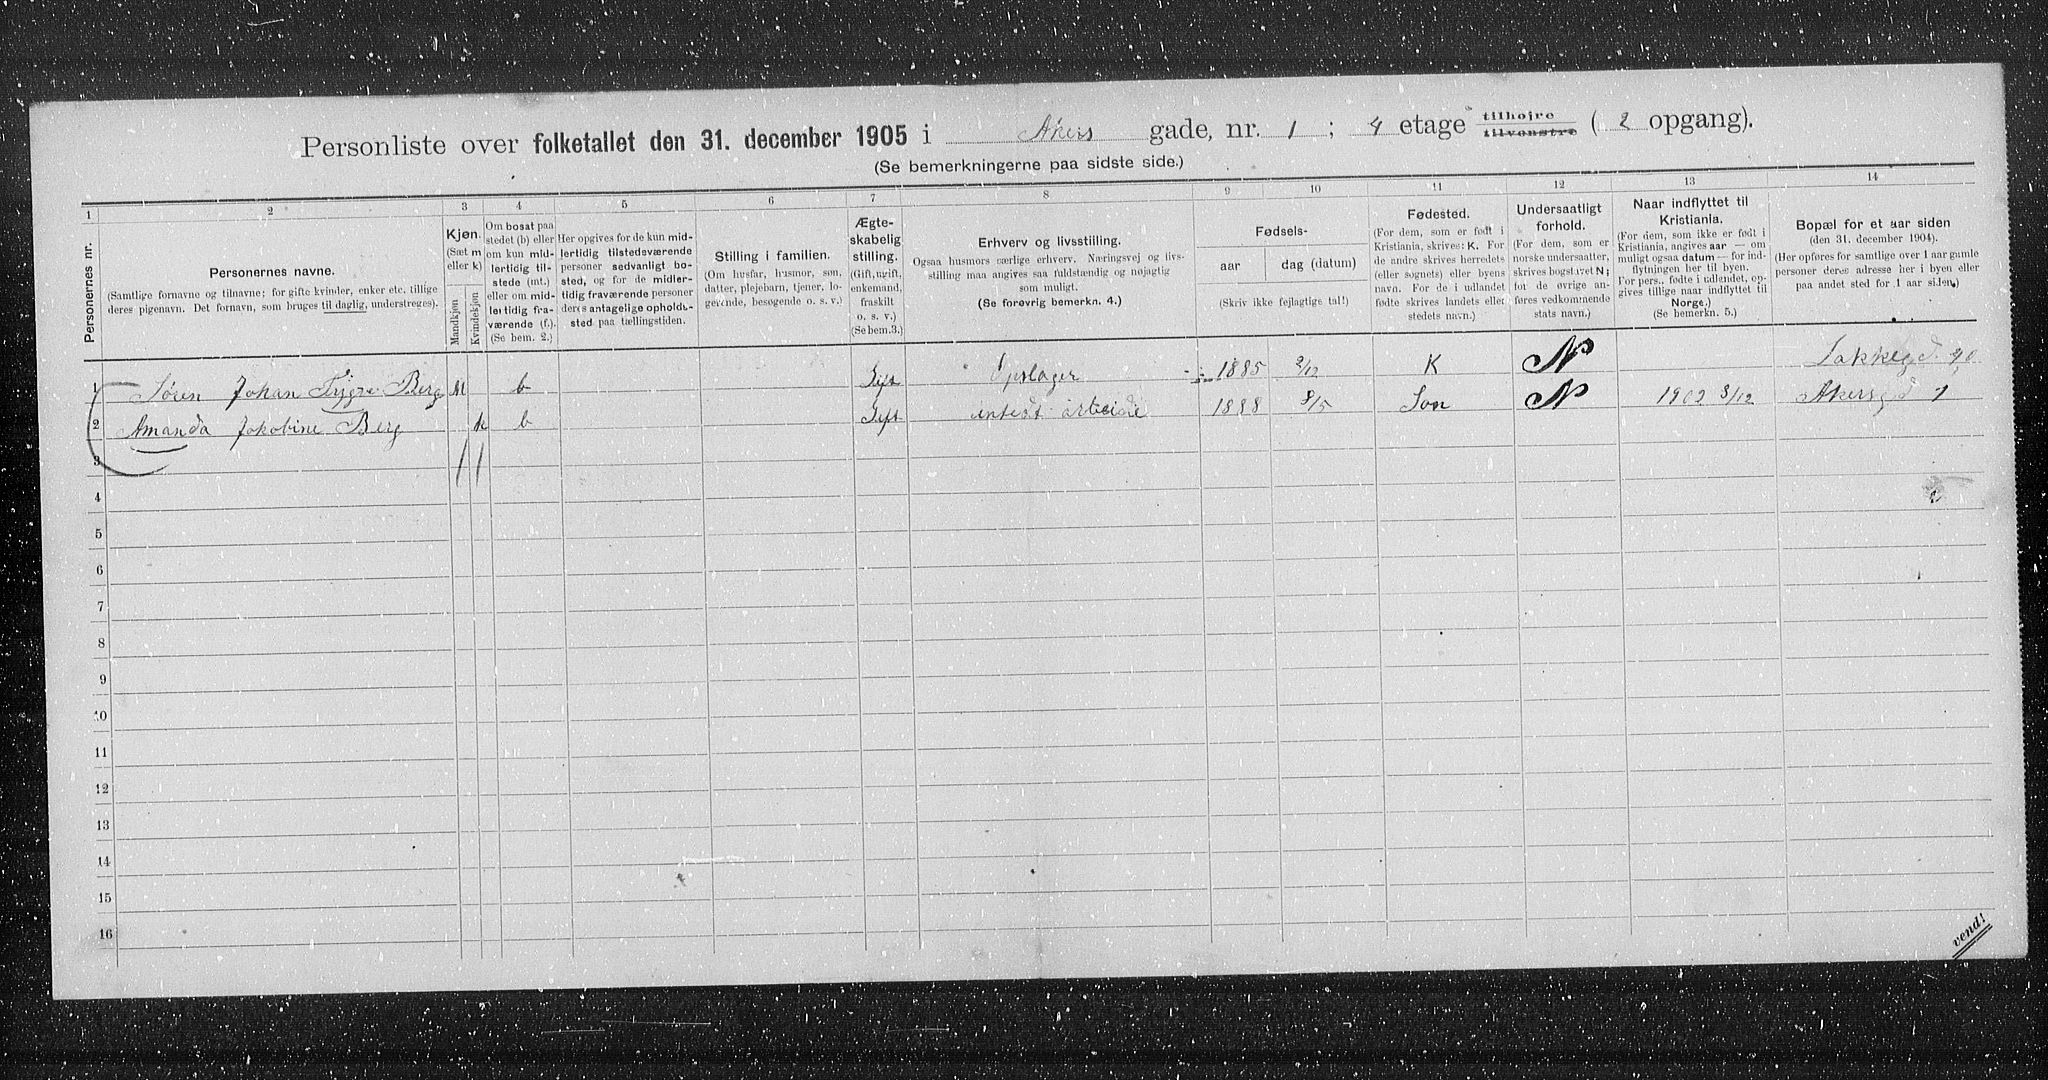 Personliste over folketallet den 31. december 1905 i Akers gade, nr. 1 ; 4 etage tilhøjre tilvenstre ( 2 opgang).
(Se bemerkningerne paa sidste side.)
1 2 3 4 5 6 7 8 9 10 11 12 13 14
Personernes nr.
Personernes navne.
(Samtlige fornavne og tilnavne; for gifte kvinder, enker etc. tillige
deres pigenavn. Det fornavn, som bruges til daglig, understreges).
Kjøn.
(Sæt m
eller k)
Mandkjøn
Kvindekjøn
Om bosat paa
stedet (b) eller
om kun mid-
lertidig til-
stede (mt.)
eller om mid-
lertidig fra-
værende (f.).
(Se bem. 2.)
Her opgives for de kun mid-
lertidig tilstedeværende
personer sedvanligt bo-
sted, og for de midler-
tidig fraværende personer
deres antagelige opholds-
sted paa tællingstiden.
Stilling i familien.
(Om husfar, husmor, søn,
datter, plejebarn, tjener, lo-
gerende, besøgende o. s. v.)
Ægte-
skabelig
stilling.
(Gift, ugift,
enkemand,
fraskilt
o. s. v.)
(Se bem.3.)
Erhverv og livsstilling.
Ogsaa husmors særlige erhverv. Næringsvej og livs-
stilling maa angives saa fuldstændig og nøjagtig
som muligt.
(Se forøvrig bemerkn. 4.)
Fødsels-
aar
dag (datum)
(Skriv ikke fejlagtige tal!)
Fødested.
(For dem, som er født i
Kristiania, skrives: K. For
de andre skrives herredets
(eller sognets) eller byens
navn. For de i udlandet
fødte skrives landets eller
stedets navn.)
Undersaatligt
forhold.
(For dem, som er
norske undersaatter,
skrives bogstavet N;
for de øvrige an-
føres vedkommende
stats navn.)
Naar indflyttet til
Kristiania.
(For dem, som ikke er født i
Kristiania, angives aar — om
muligt ogsaa datum — for ind-
flytningen her til byen.
For pers., fødte i udlendet, op-
gives tillige naar indflyttet til
Norge.)
(Se bemerkn. 5.)
Bopæl for et aar siden
(den 31. december 1904).
(Her opføres for samtlige over 1 aar gamle
personer deres adresse her i byen eller
paa andet sted for 1 aar siden.)
1 Søren Johan Trygve Berg M b Gift Opslager 1885 2/12 K N Lakkegd. 90
2 Amanda Jakobine Berg k b Gift 1888 8/5 Son N 1902 3/12 Akersgd 1
3
4
5
6
7
8
9
10
11
12
13
14
15
16
vend!